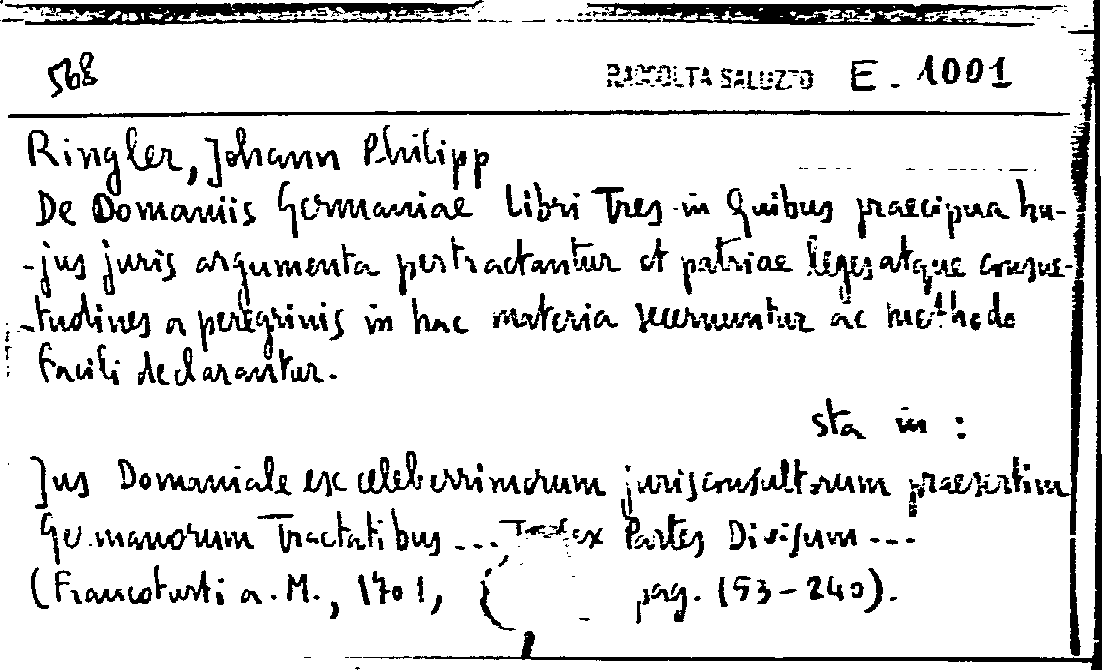 568 RACCOLTA SALUZZO E. 1001
Ringler, Johann Philipp
De Domaniis Germaniae libri Tres in Quibus praecipua hu-
-jus juris argumenta pertractantur et patriae leges atque consue-
-tudines a peregrinis in hac materia secernuntur ac methodo
facili declarantur.
sta in :
Jus Domaniale ex celeberrimorum jurisconsultorum praesertim
Germanorum Tractatibus ... Partes Divisum ...
(Francofurti a. M., 1701, pag. 153-240).